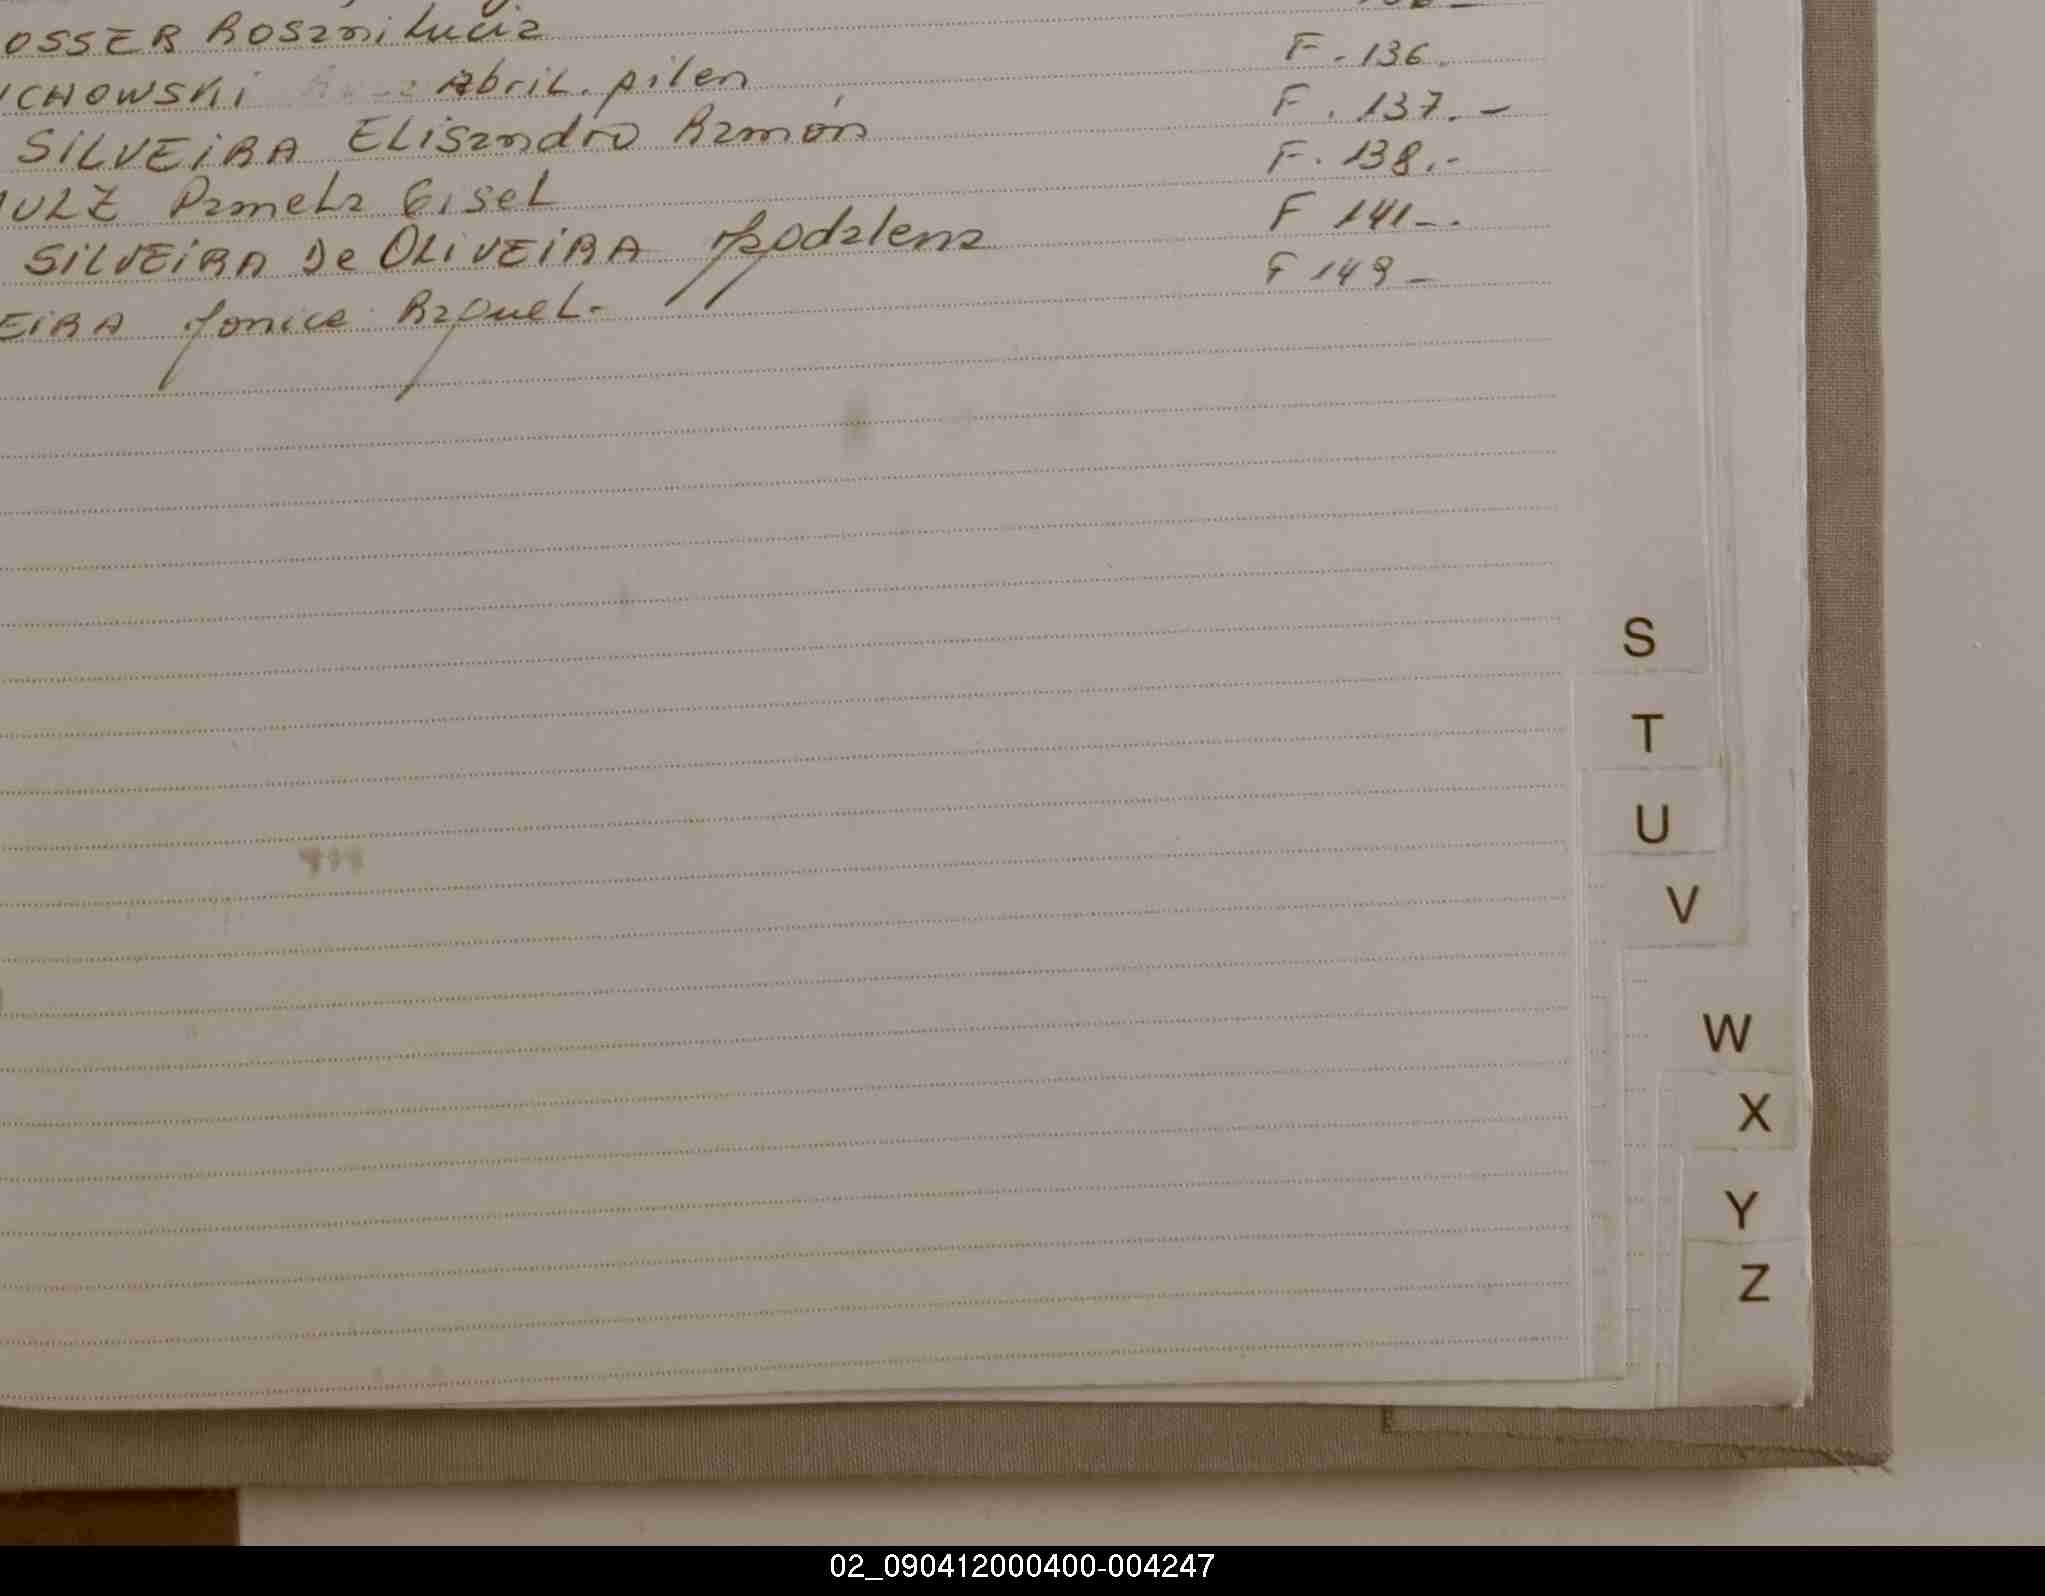 OSSER Rosani Lucia
F-136.
UCHOWSKi Abril. pilen
F. 137.-
SiLVEiRA ELisandro Ramón
F. 138.-
ULZ PameLa GiseL
F 141-.
SiLVEiRA De OLiVEiRA Magdalena
F 149-
EiRA Jonice RaqueL-
S
T
U
V
W
X
Y
Z
02_090412000400-004247